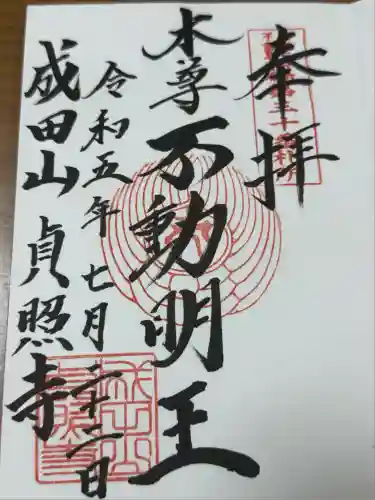 奉拝
本尊不動明王
令和五年七月二十二日
成田山貞照寺